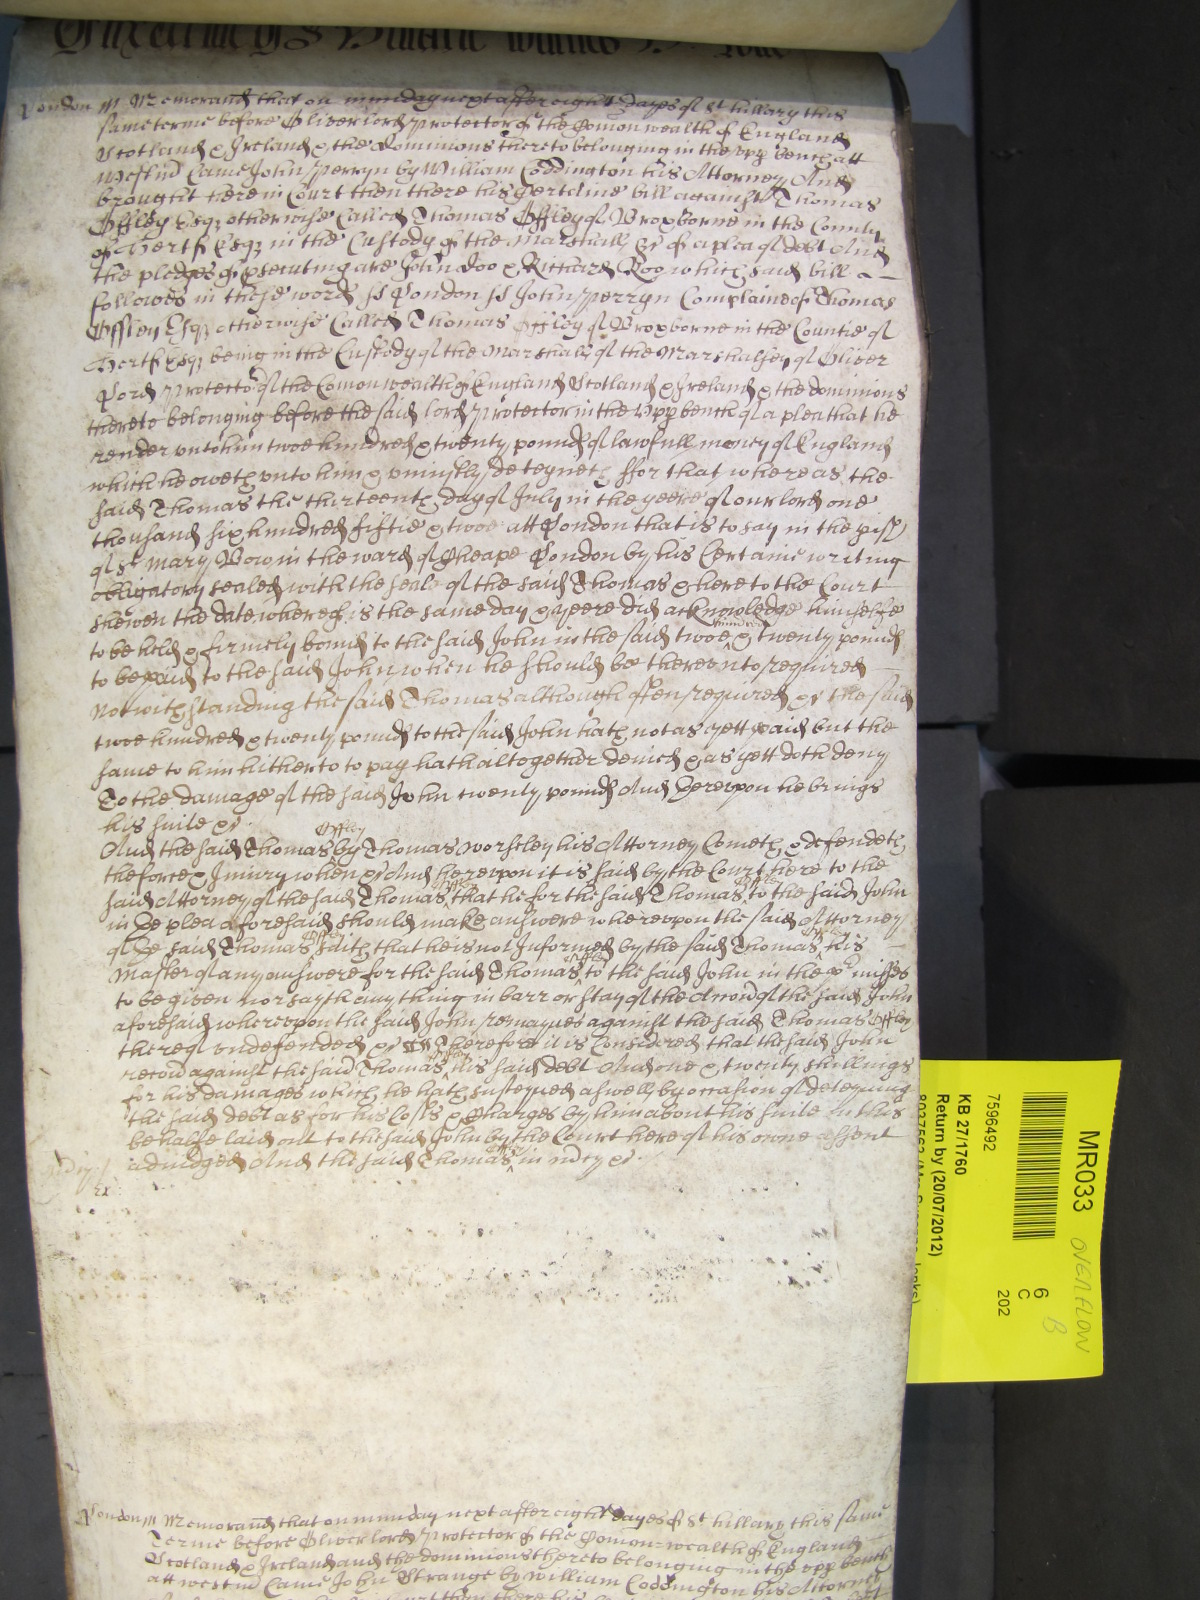 London ss Memorand that on munday next after eight dayes of St hillary this
same terme before Oliver lord Protector of the Comonwealth of England
Scotland & Ireland & the dominions thereto belonging in the upp bench att
Westm Came John Perryn by William Coddington his Attorney And
brought here in Court then there his Certeine bill against Thomas
Offley Esqr otherwise Called Thomas Offley of Broxborne in the County
of Hertf Esqr in the Custody of the Marshall &c of a plea of debt And
the pledges of psecuting are John Doo & Richard Roo which said bill
followes in these words ss London ss John Perryn Complaines of Thomas
Offley Esqr otherwise Called Thomas Offley of Broxborne in the Countie of
Hertf Esqr being in the Custody of the Marshall of the Marshalsey of Oliver
Lord Protector of the Comonwealth of England Scotland & Ireland & the dominions
thereto belonging before the said lord Protector in the upp bench of a plea that he
render unto him twoe hundred & twenty pounds of lawfull money of England
which he oweth unto him & uniustly deteyneth ffor that whereas the
said Thomas the thirteenth day of July in the yeere of our lord one
thousand six hundred fiftie & twoe att London that is to say in the pish
of St Mary Bow in the ward of Cheape London by his Certaine writing
obligatory sealed with the seale of the said Thomas & here to the Court
shewen the date whereof is the same day & yeere did acknowledge himselfe
to be held & firmely bound to the said John in the said twoe hundred & twenty pounds
to be paid to the said John when he should be thereunto required
Notwithstanding the said Thomas although often required &c the said
twoe hundred & twenty pounds to the said John hath not as yett paid but the
same to him hitherto to pay hath altogether denied & as yett doth deny
To the damage of the said John twenty pounds And Thereupon he brings
his suite &c
And the said Thomas Offley by Thomas Worseley his Attorney Cometh & defendeth
the force & Iniury when &c And hereupon it is said by the Court here to the
said Attorney of the said Thomas Offley that he for the said Thomas Offley to the said John
in ye plea aforesaid should make answere whereupon the said Attorney
of ye said Thomas Offley saith that he is not Informed by the said Thomas Offley his
Master of any answere for the said Thomas Offley to the said John in the pmisses
to be given nor sayth any thing in barr or stay of the Accon of the said John
aforesaid whereupon the said John remaynes against the said Thomas Offley
thereof undefended &c Therefore it is Considered that the said John
recov against the said Thomas Offley his said debt And one & twenty shillings
for his damages which he hath susteyned aswell by occasion of deteyning
the said debt as for his Costs & Charges by him about his suite in this
behalfe laid out to the said John by the Court here of his owne assent
adiudged And the said Thomas Offley in mcy &c
London ss Memorand that on munday next after eight dayes of St hillary this same
Terme before Oliver lord Protector of the Comon-wealth of England
Scotland & Ireland and the dominions thereto belonging in the upp bench
att westm Came John Strange by William Coddington his Attorney
MR033
OVERFLOW
B
6
C
202
7596492
KB 27/1760
Return by (20/07/2012)